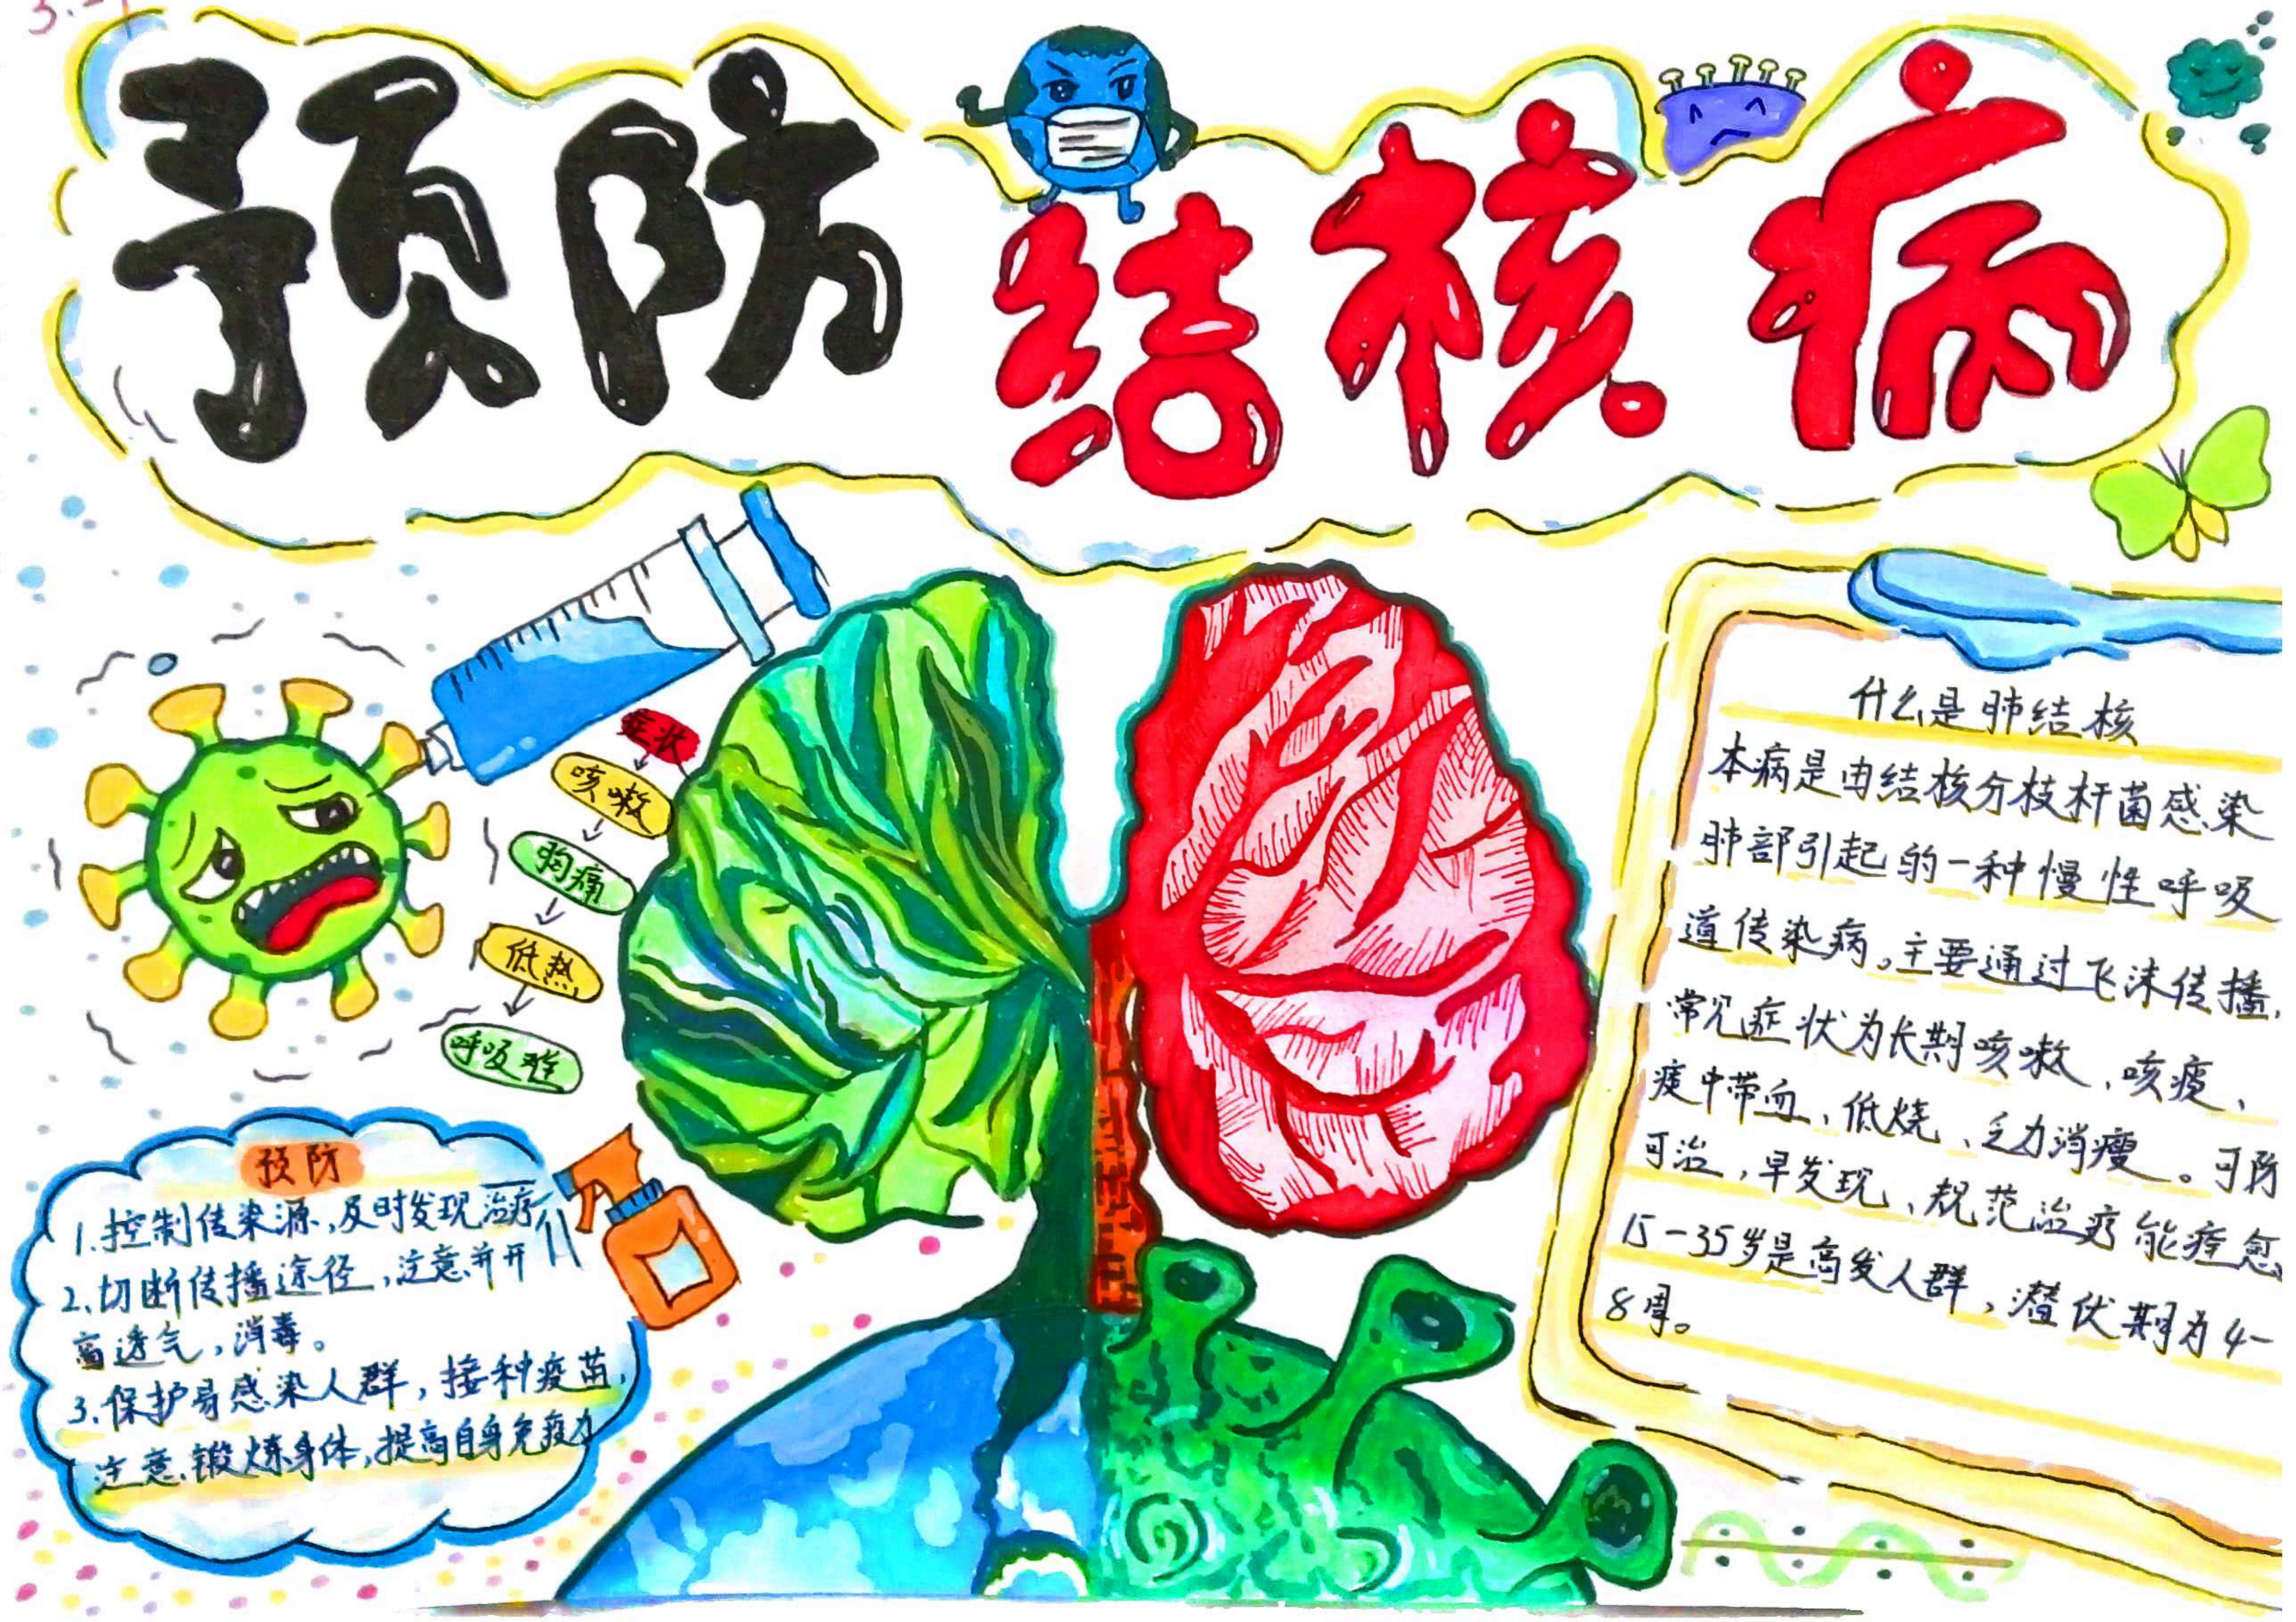 预防结核病
症状
咳嗽
胸痛
低热
呼吸难
预防
1.控制传染源,及时发现治疗
2.切断传播途径,注意并开
窗透气,消毒。
3.保护易感染人群,接种疫苗,
注意锻炼身体,提高自身免疫力
什么是肺结核
本病是由结核分枝杆菌感染
肺部引起的一种慢性呼吸
道传染病。主要通过飞沫传播,
常见症状为长期咳嗽、咳痰、
痰中带血、低烧、乏力消瘦。可防
可治,早发现、规范治疗能痊愈
15-35岁是高发人群,潜伏期为4-
8周。